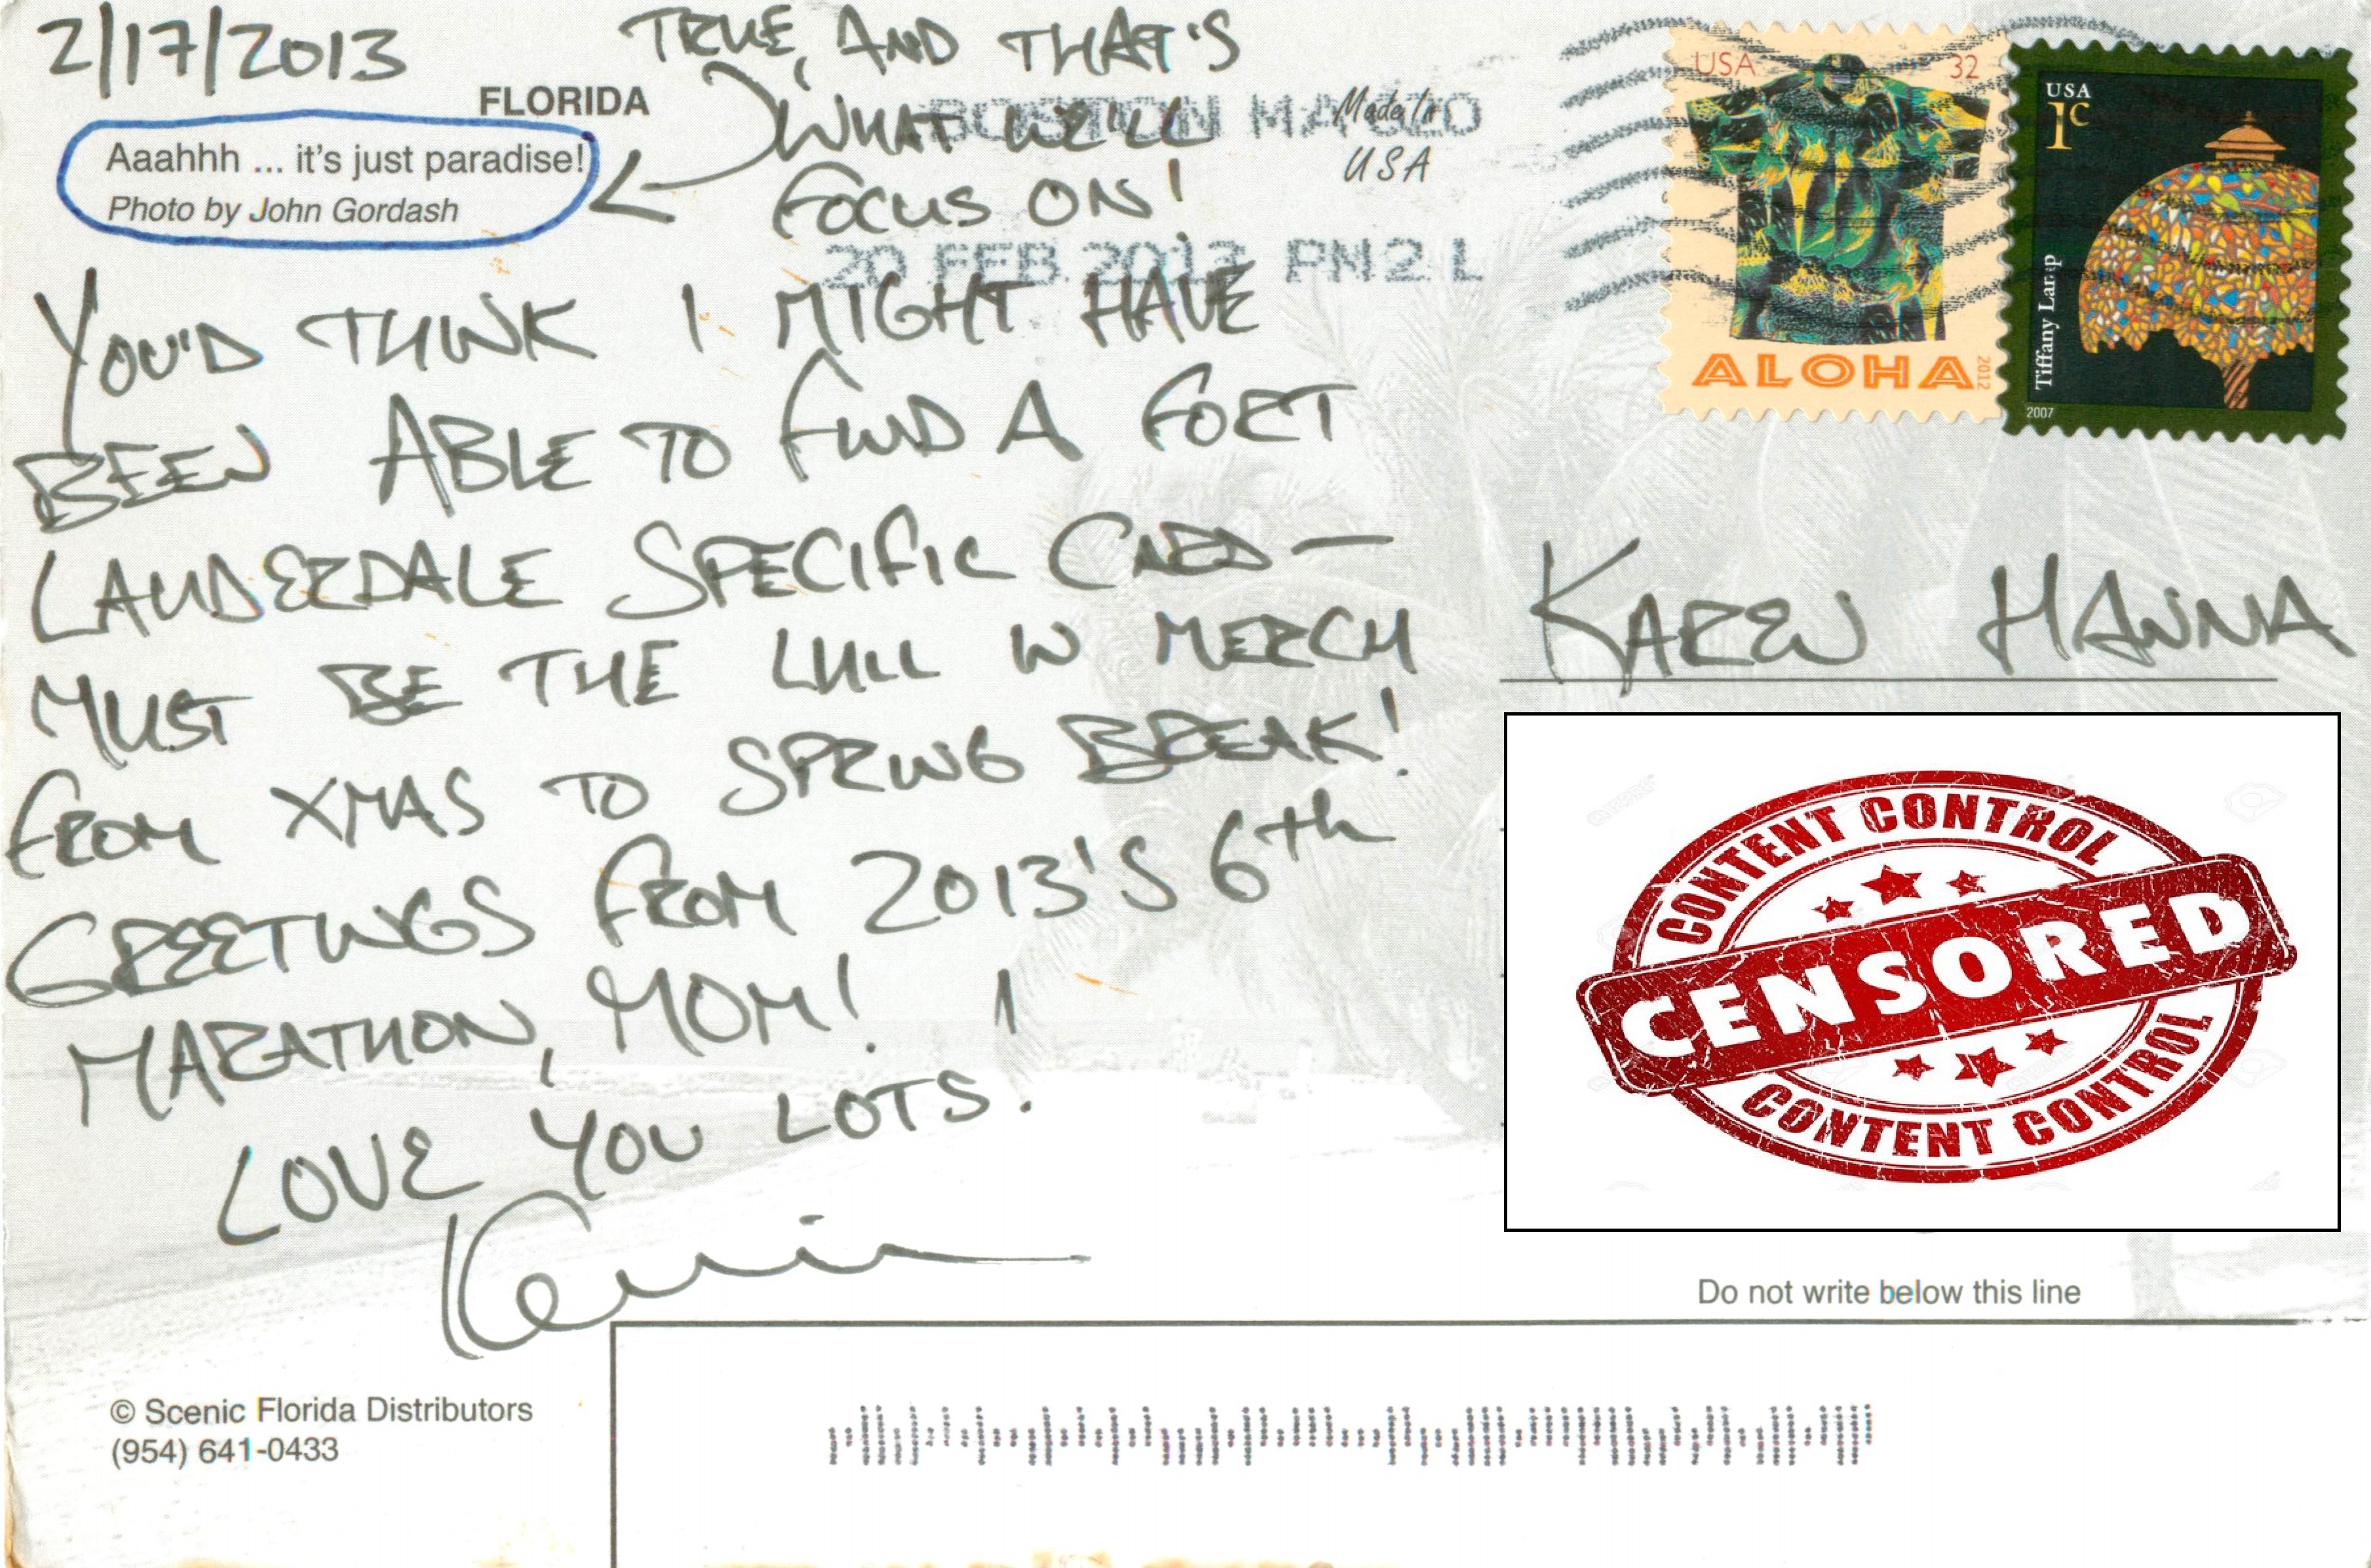 2/17/2013
FLORIDA
Aaahhh ... it's just paradise!
Photo by John Gordash
TRUE, AND THAT'S
WHAT WE'LL
FOCUS ON!
YOU'D THINK I MIGHT HAVE
BEEN ABLE TO FIND A FORT
LAUDERDALE SPECIFIC CARD—
MUST BE THE LULL IN MERCH
FROM XMAS TO SPRING BREAK!
GREETINGS FROM 2013'S 6th
MARATHON, MOM! I
LOVE YOU LOTS.
Kevin
© Scenic Florida Distributors
(954) 641-0433
BOSTON MA
20 FEB 2013 PM 2 L
Made In
USA
USA 32
ALOHA
2012
USA
1c
Tiffany Lamp
2007
KAREN HANNA
CONTENT CONTROL
CENSORED
CONTENT CONTROL
Do not write below this line